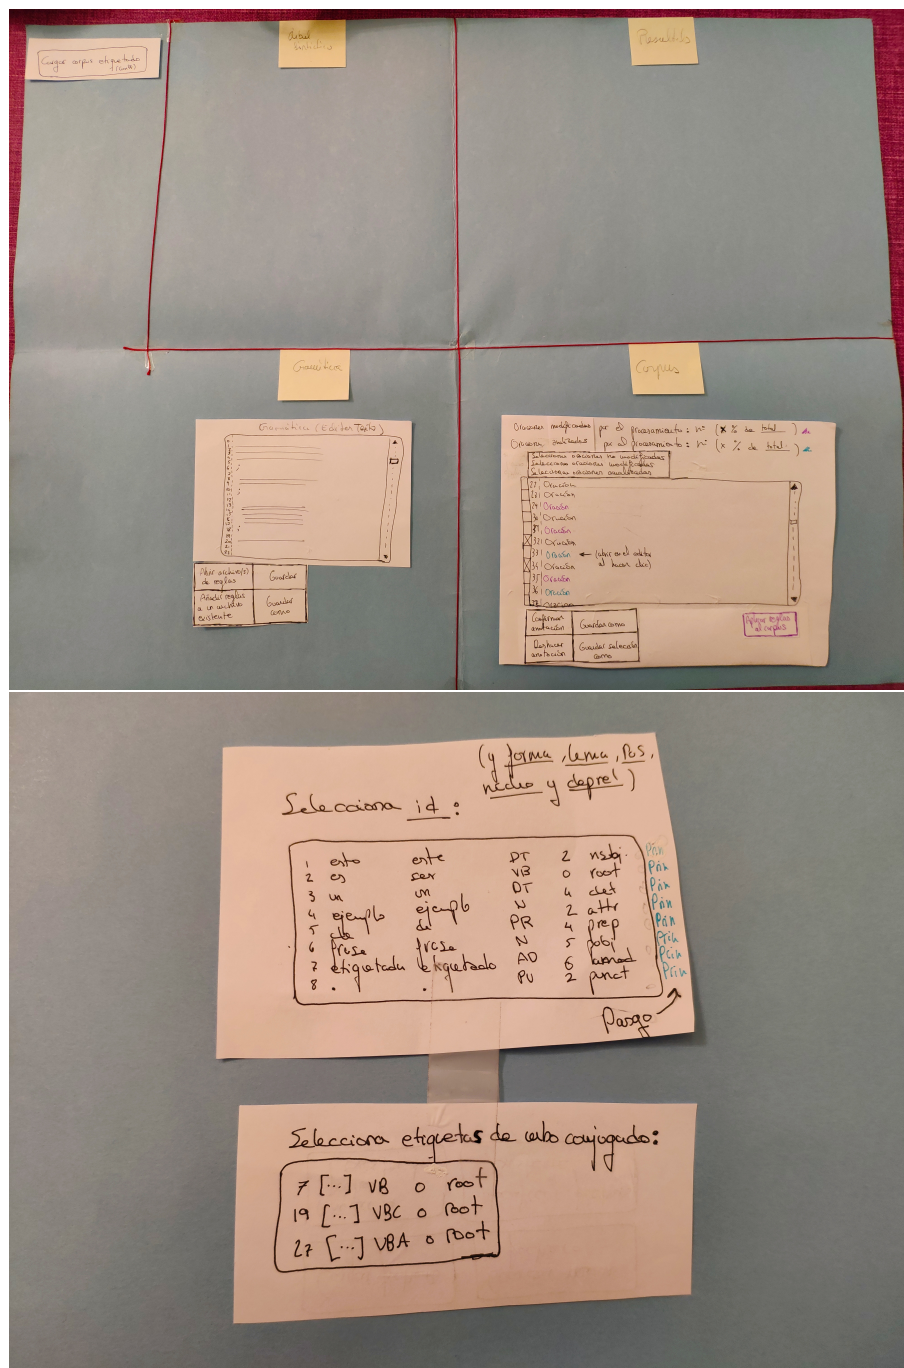 Cargar corpus etiquetado
(Conll)
Árbol
sintáctico
Resultados
Gramática
Corpus
Gramática (Editor Texto)
Abrir archivo(s)
de reglas
Guardar
Añadir reglas
a un archivo
existente
Guardar
como
Oraciones modificadas por el procesamiento: nº (x % de total)
Oraciones analizadas por el procesamiento: nº (x % de total)
Seleccionar oraciones no modificadas
Seleccionar oraciones modificadas
Seleccionar oraciones analizadas
Oración
Oración
Oración
30 Oración
31 Oración
32 Oración
33 Oración ← (abrir en el editor
al hacer clic)
34 Oración
35 Oración
36 Oración
Oración
Confirmar
anotación
Guardar como
Deshacer
anotación
Guardar selección
como
Aplicar reglas
al corpus
(y forma, lema, POS,
núcleo y deprel)
Selecciona id:
1 esto este DT 2 nsubj
2 es ser VB 0 root
3 un un DT 4 det
4 ejemplo ejemplo N 2 attr
5 de de PR 4 prep
6 frase frase N 5 pobj
7 etiquetada etiquetado AD 6 amod
8 . . PU 2 punct
Rasgo
Selecciona etiquetas de verbo conjugado:
7 [...] VB 0 root
19 [...] VBC 0 root
27 [...] VBA 0 root